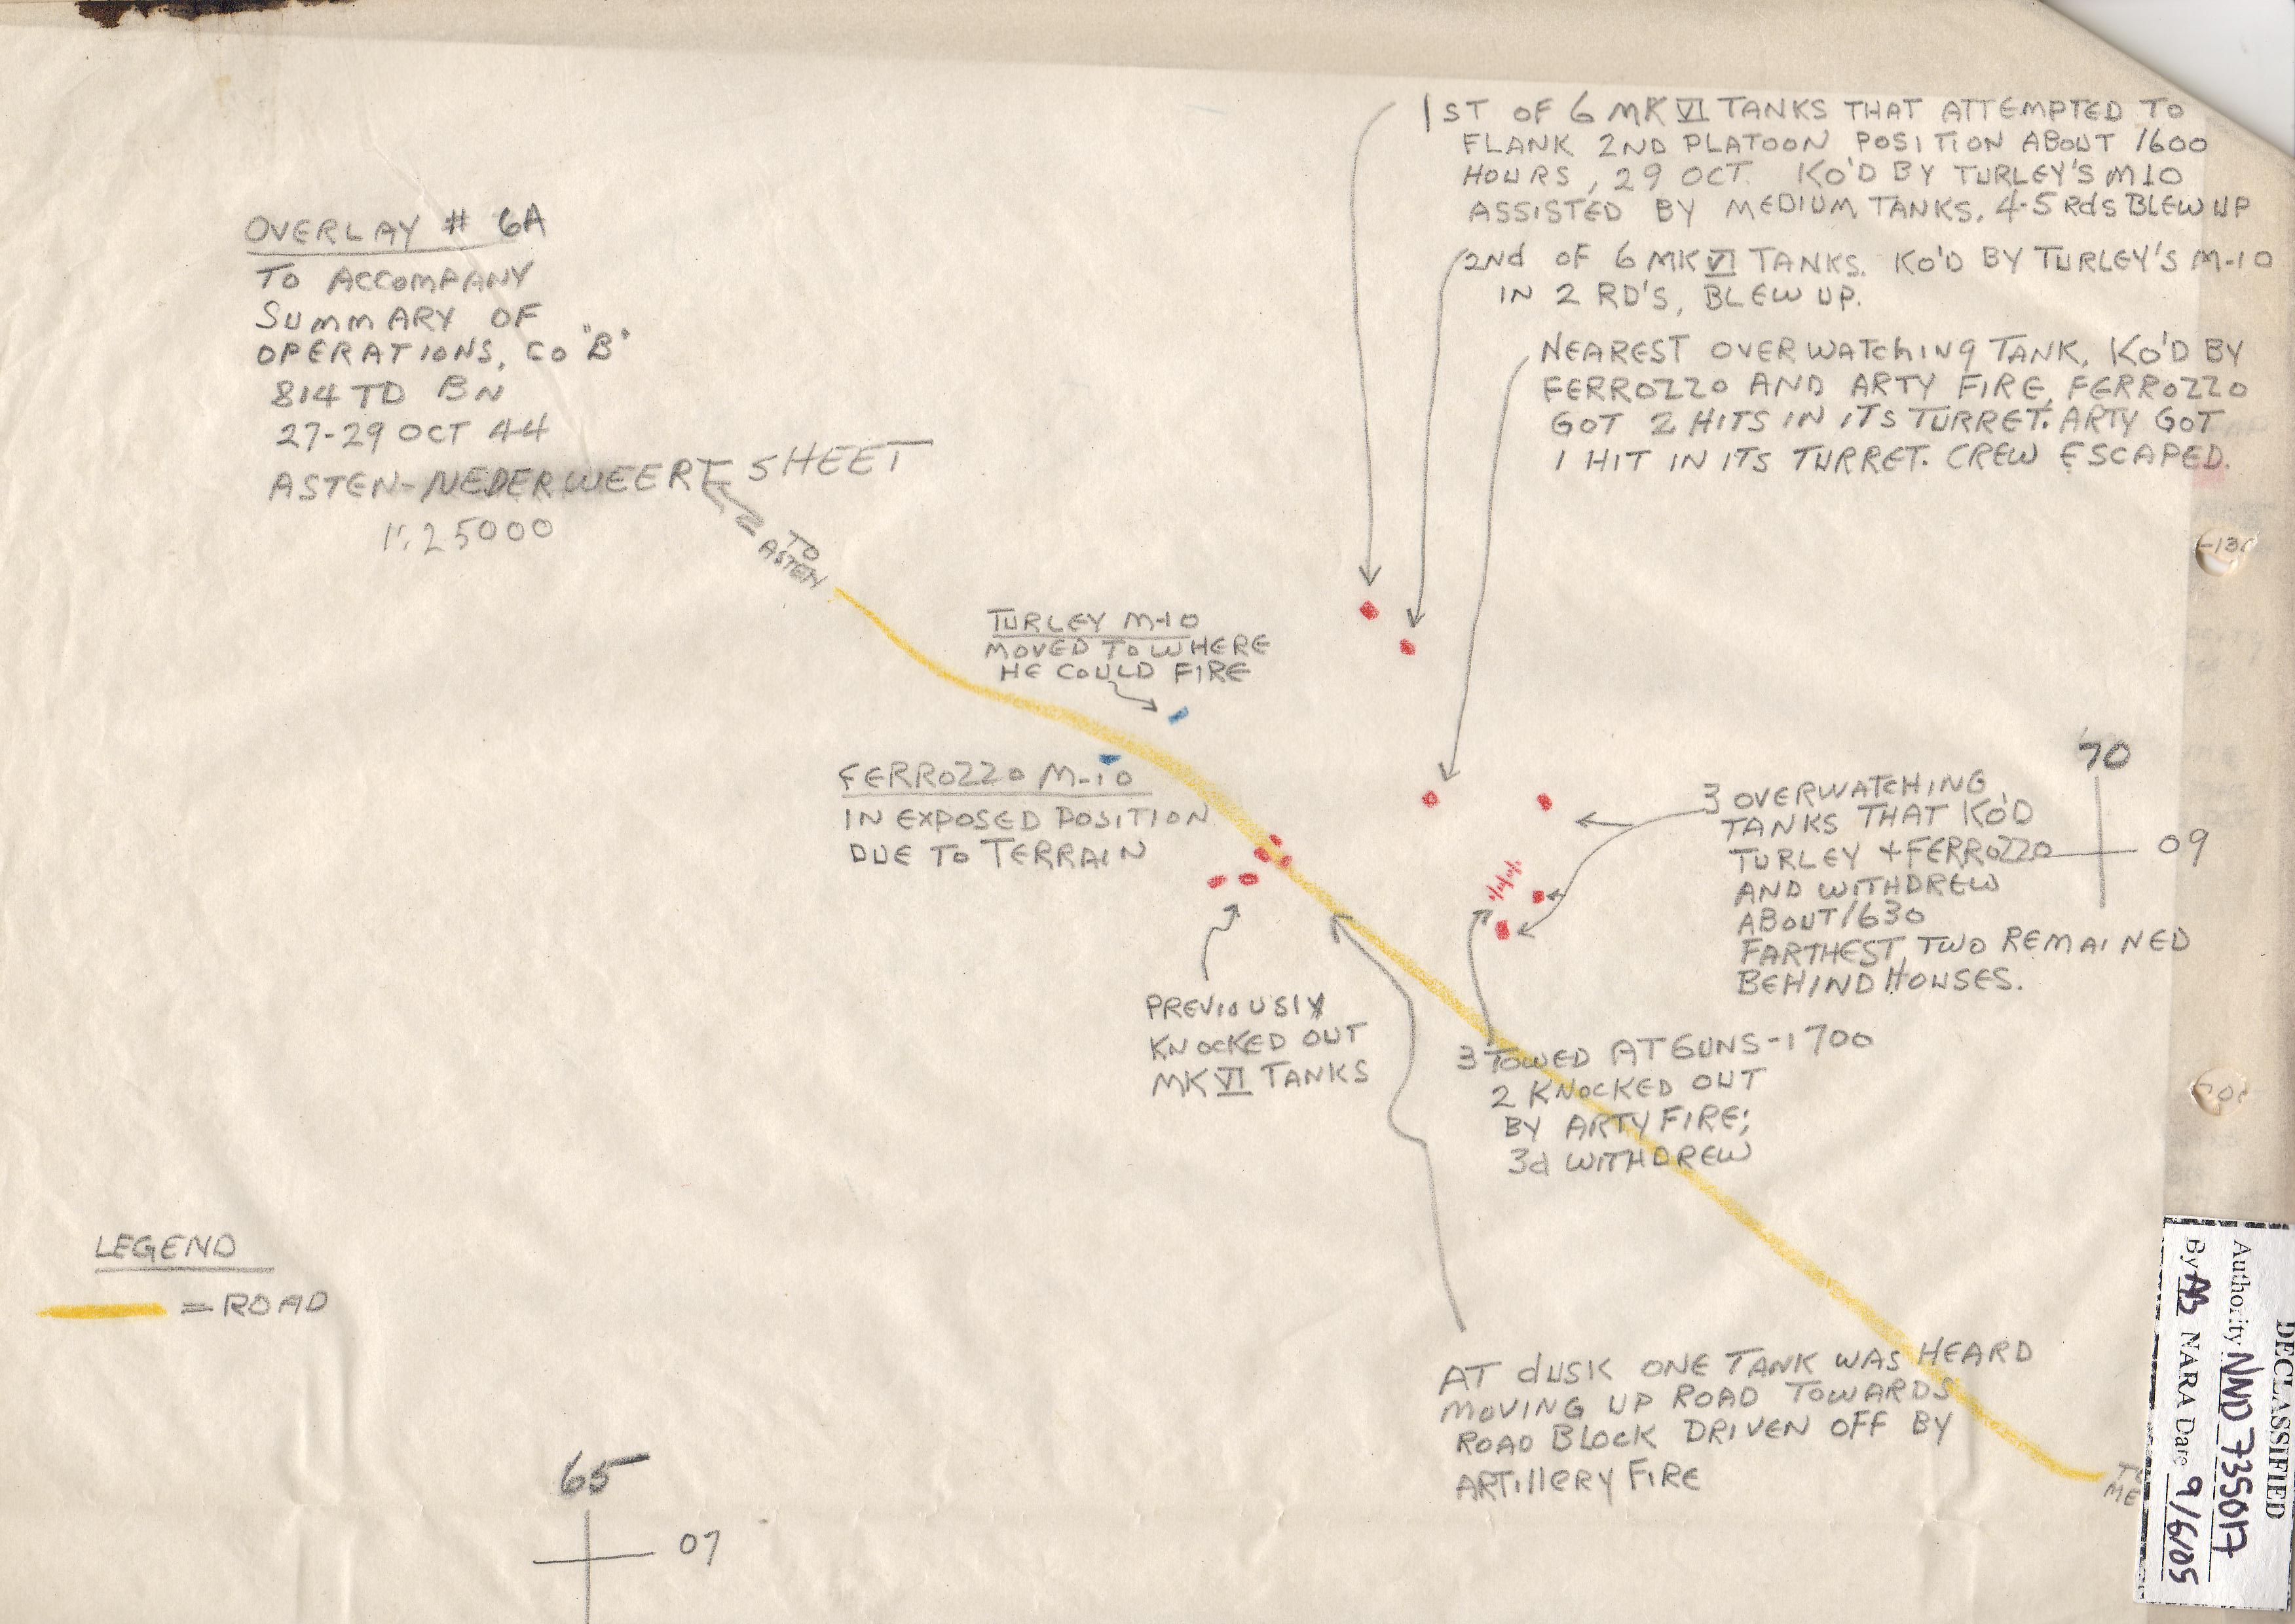 OVERLAY # 6A
TO ACCOMPANY
SUMMARY OF
OPERATIONS, CO "B"
814 TD BN
27-29 OCT 44
ASTEN-NEDERWEERT SHEET
1:25000
TO
ASTEN
1ST OF 6 MK VI TANKS THAT ATTEMPTED TO
FLANK 2ND PLATOON POSITION ABOUT 1600
HOURS, 29 OCT. KO'D BY TURLEY'S M10
ASSISTED BY MEDIUM TANKS. 4-5 RdS BLEW UP
2Nd OF 6 MK VI TANKS. KO'D BY TURLEY'S M-10
IN 2 RD'S, BLEW UP.
NEAREST OVERWATChING TANK, KO'D BY
FERROZZO AND ARTY FIRE, FERROZZO
GOT 2 HITS IN ITS TURRET. ARTY GOT
1 HIT IN ITS TURRET. CREW ESCAPED.
TURLEY M-10
MOVED TO WHERE
HE COULD FIRE
FERROZZO M-10
IN EXPOSED POSITION
DUE TO TERRAIN
PREVIOUSLY
KNOCKED OUT
MK VI TANKS
3 OVERWATCHING
TANKS THAT KO'D
TURLEY + FERROZZO
AND WITHDREW
ABOUT 1630
FARTHEST TWO REMAINED
BEHIND HOUSES.
70
09
3 TOWED AT GUNS-1700
2 KNOCKED OUT
BY ARTY FIRE;
3d WITHDREW
AT dUSK ONE TANK WAS HEARD
MOVING UP ROAD TOWARDS
ROAD BLOCK DRIVEN OFF BY
ARTILLERY FIRE
LEGEND
= ROAD
65
07
TO
ME
DECLASSIFIED
Authority NND 735017
By AB NARA Date 9/6/05